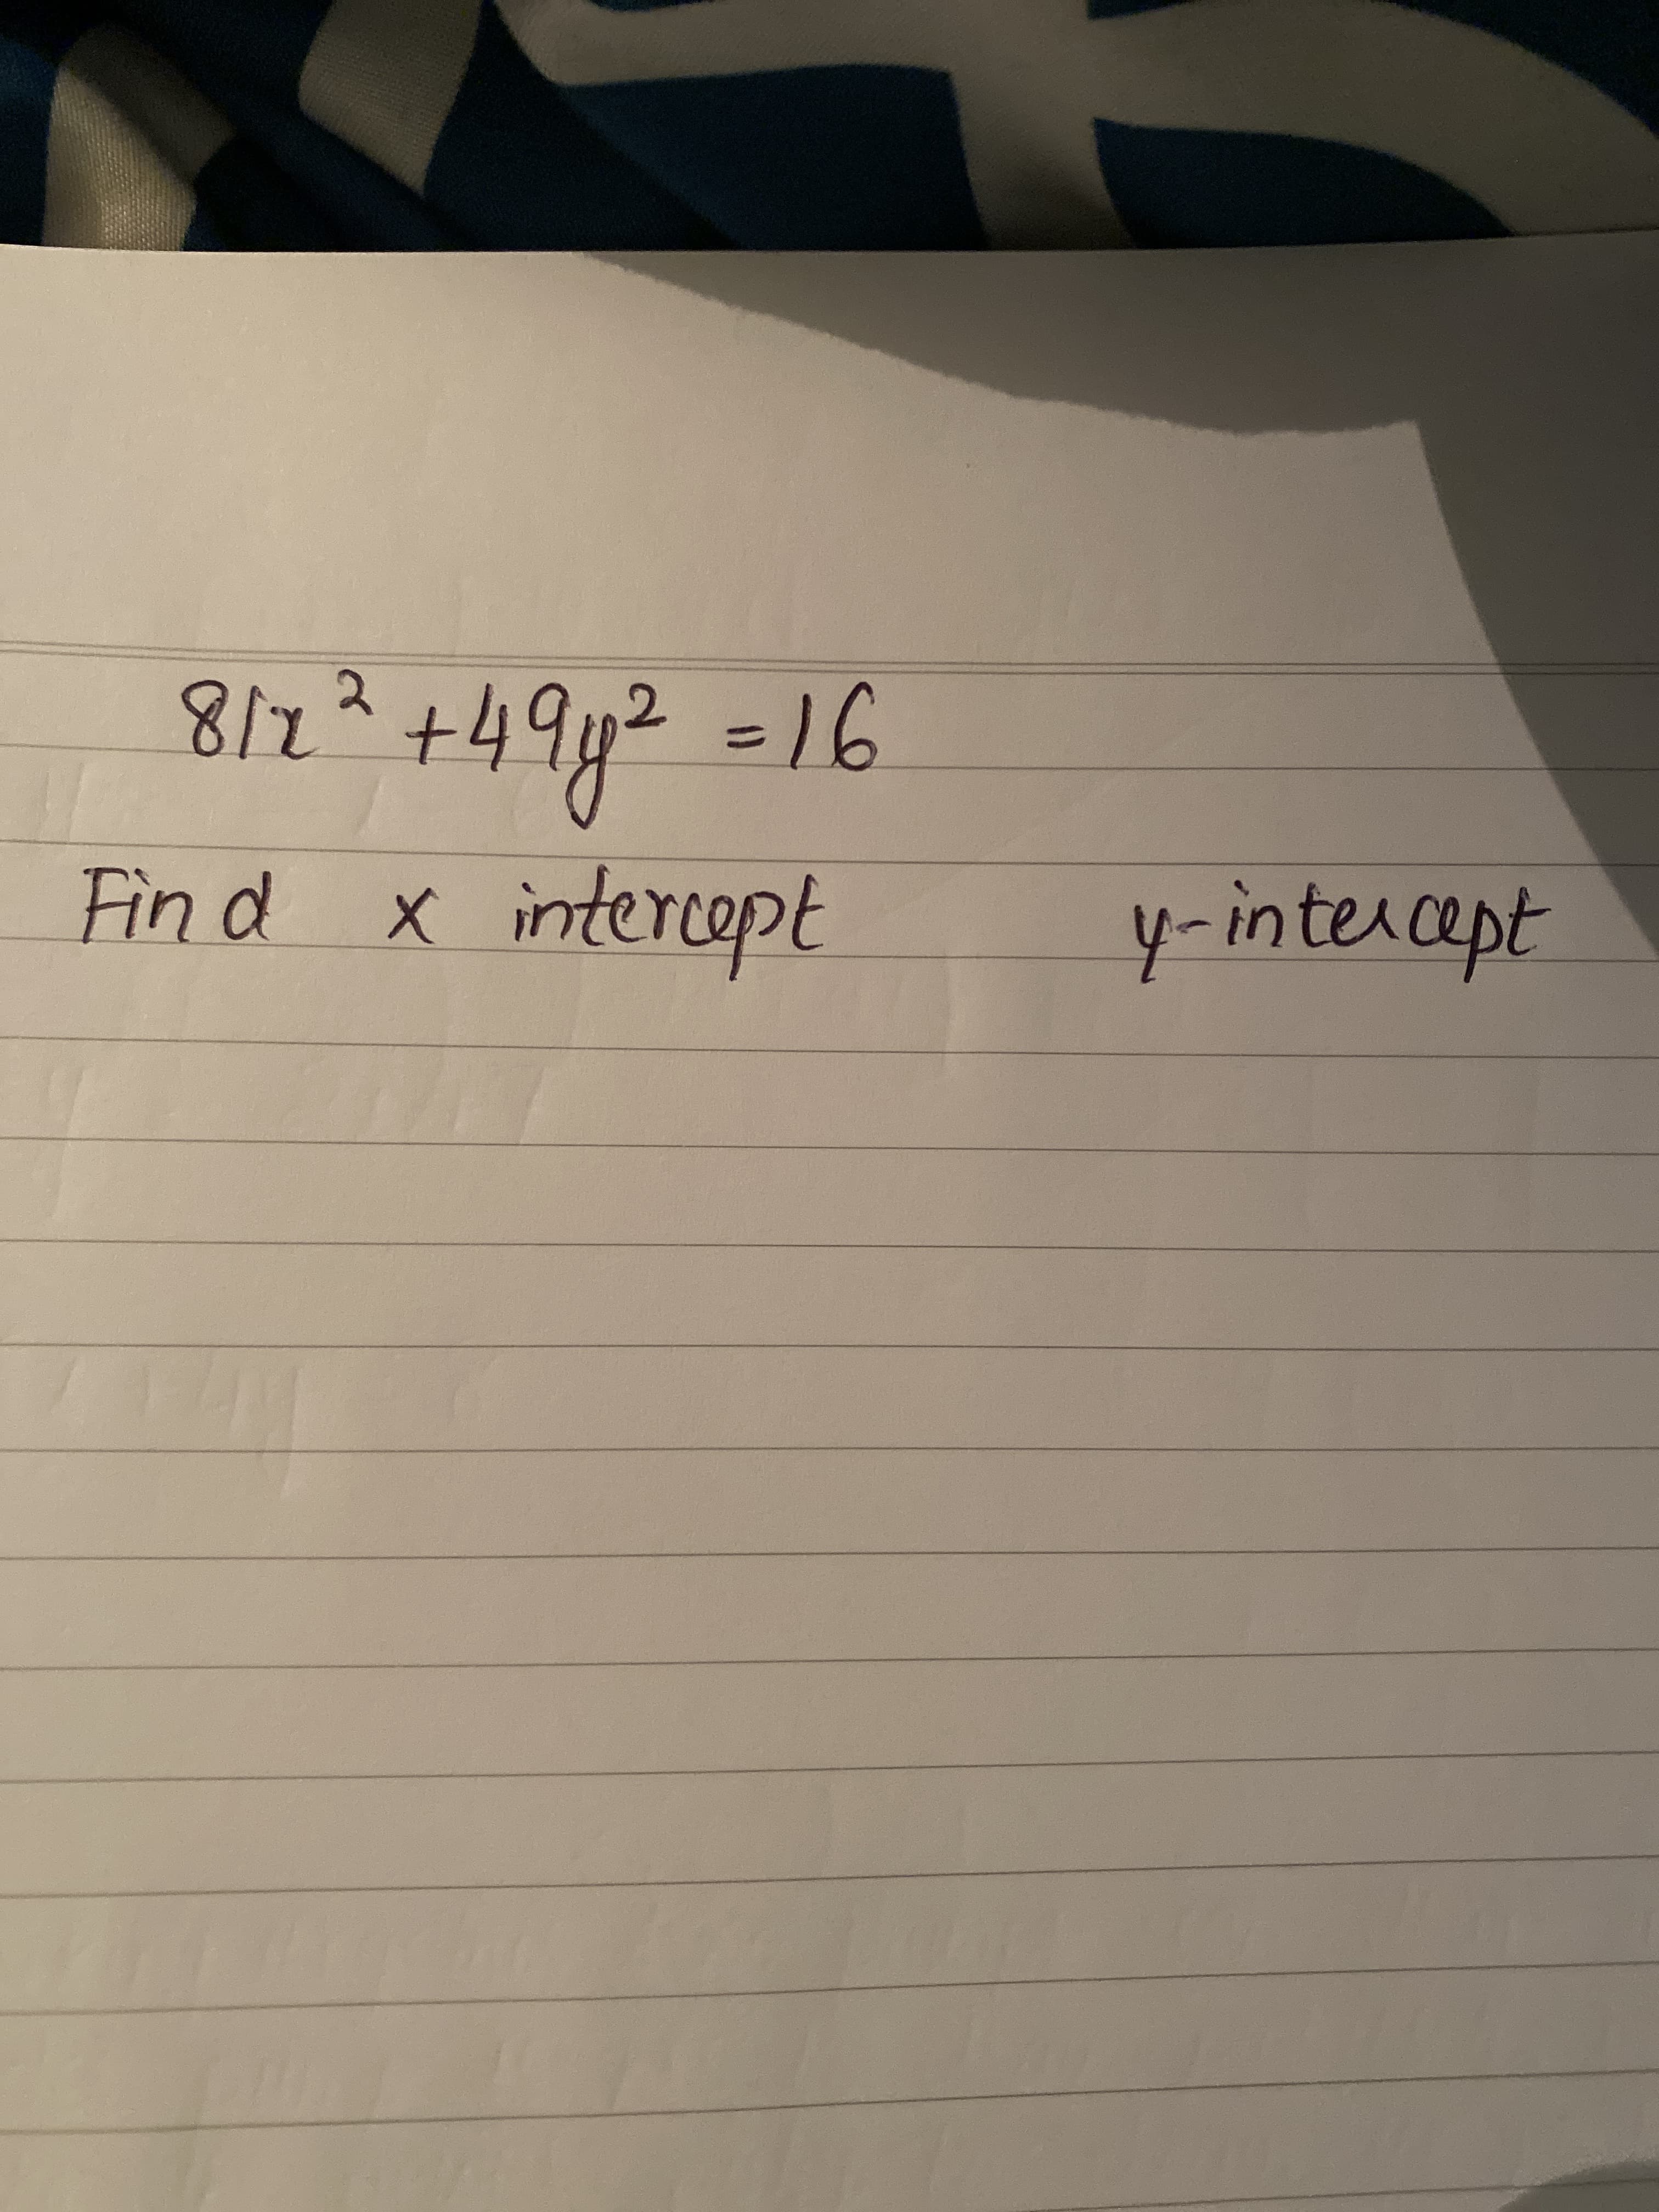 81x² + 49y² = 16
Find x intercept y-intercept